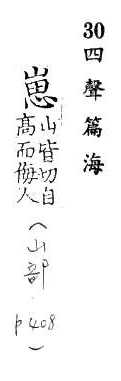 30四聲篇海
崽山皆切自
高而侮人
(山部 p408)